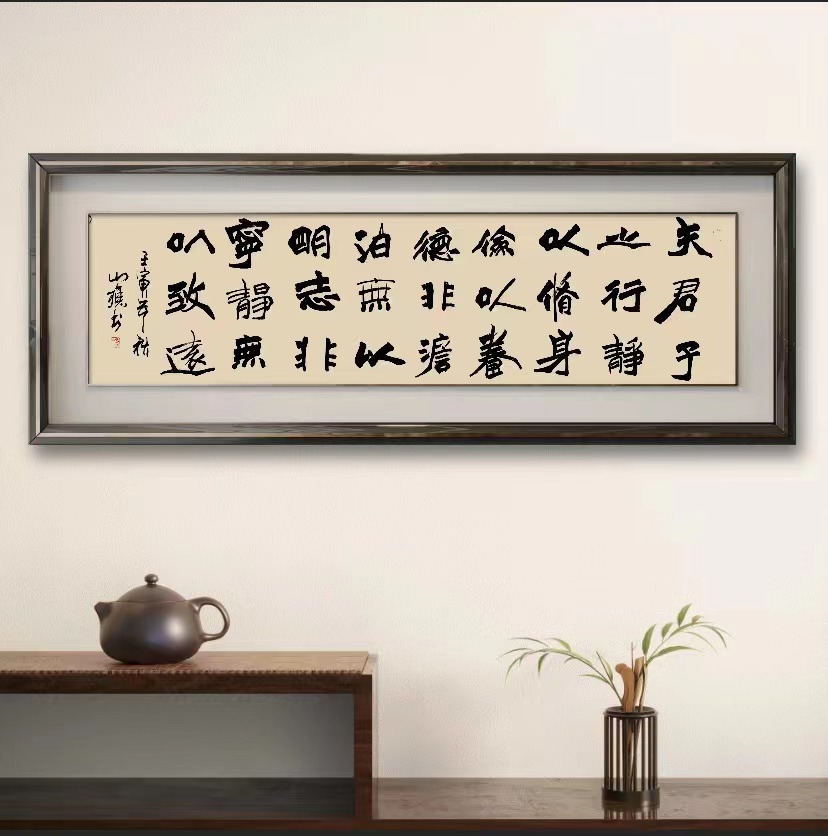 夫君子
之行靜
以脩身
儉以養
德非澹
泊無以
明志非
寧靜無
以致遠
壬寅年秋
山樵书